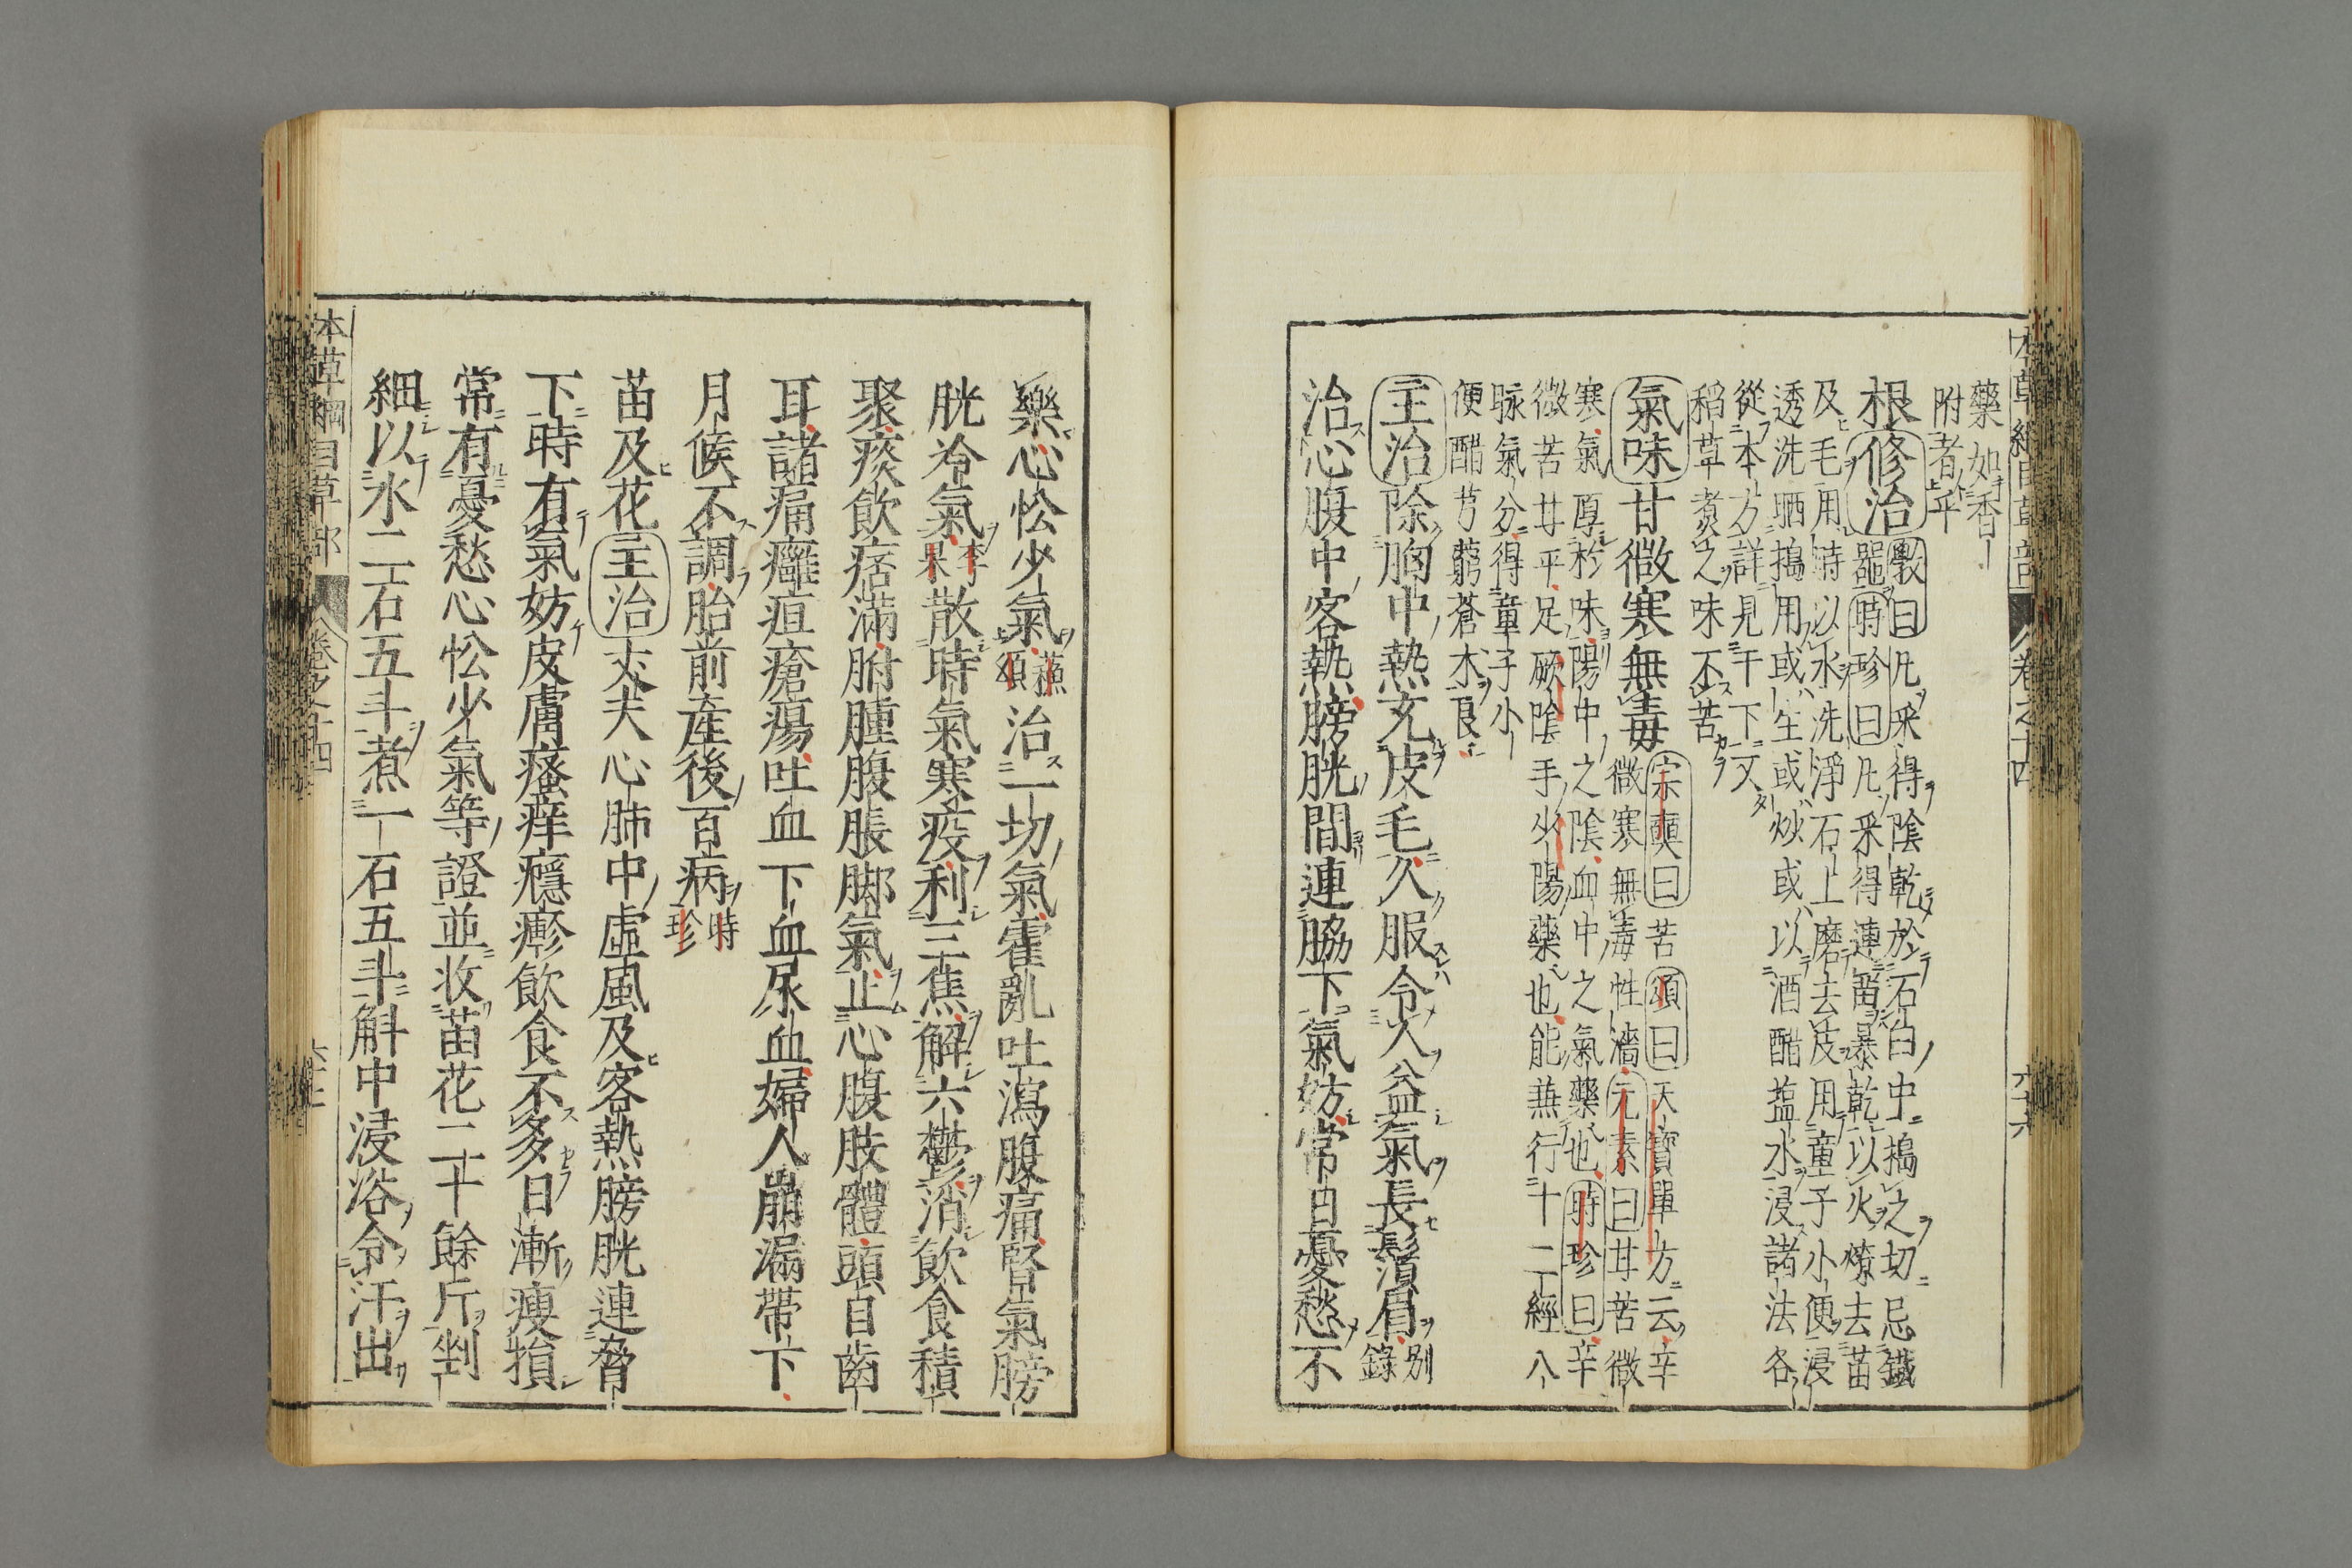 本草綱目草部 卷之十四 六十六
藥如香
附者平
根修治斆曰凡采得陰乾於石臼中搗之切忌鐵
器時珍曰凡采得連苗暴乾以火燎去苗
及毛用時以水洗淨石上磨去皮用童子小便浸
透洗晒搗用或生或炒或以酒醋盐水浸諸法各
從本方詳見干下文
稻草煮之味不苦
氣味甘微寒無毒宗奭曰苦頌曰天寶單方云辛
微寒無毒性濇元素曰甘苦微
寒氣厚於味陽中之陰血中之氣藥也時珍曰辛
微苦甘平足厥陰手少陽藥也能兼行十二經八
脉氣分得童子小
便醋芎藭蒼术良
主治除胸中熱充皮毛久服令人益氣長鬚眉别錄
治心腹中客熱膀胱間連脇下氣妨常日憂愁不
樂心忪少氣蘇頌治一切氣霍亂吐瀉腹痛腎氣膀
胱冷氣李杲散時氣寒疫利三焦解六鬱消飲食積
聚痰飲痞滿胕腫腹脹脚氣止心腹肢體頭目齒
耳諸痛癰疽瘡瘍吐血下血尿血婦人崩漏帶下
月候不調胎前産後百病時珍
苗及花主治丈夫心肺中虛風及客熱膀胱連脅
下時有氣妨皮膚瘙痒癮疹飲食不多日漸瘦損
常有憂愁心忪少氣等證並收苗花二十餘斤剉
細以水二石五斗煮一石五斗斛中浸浴令汗出
本草綱目草部 卷之十四